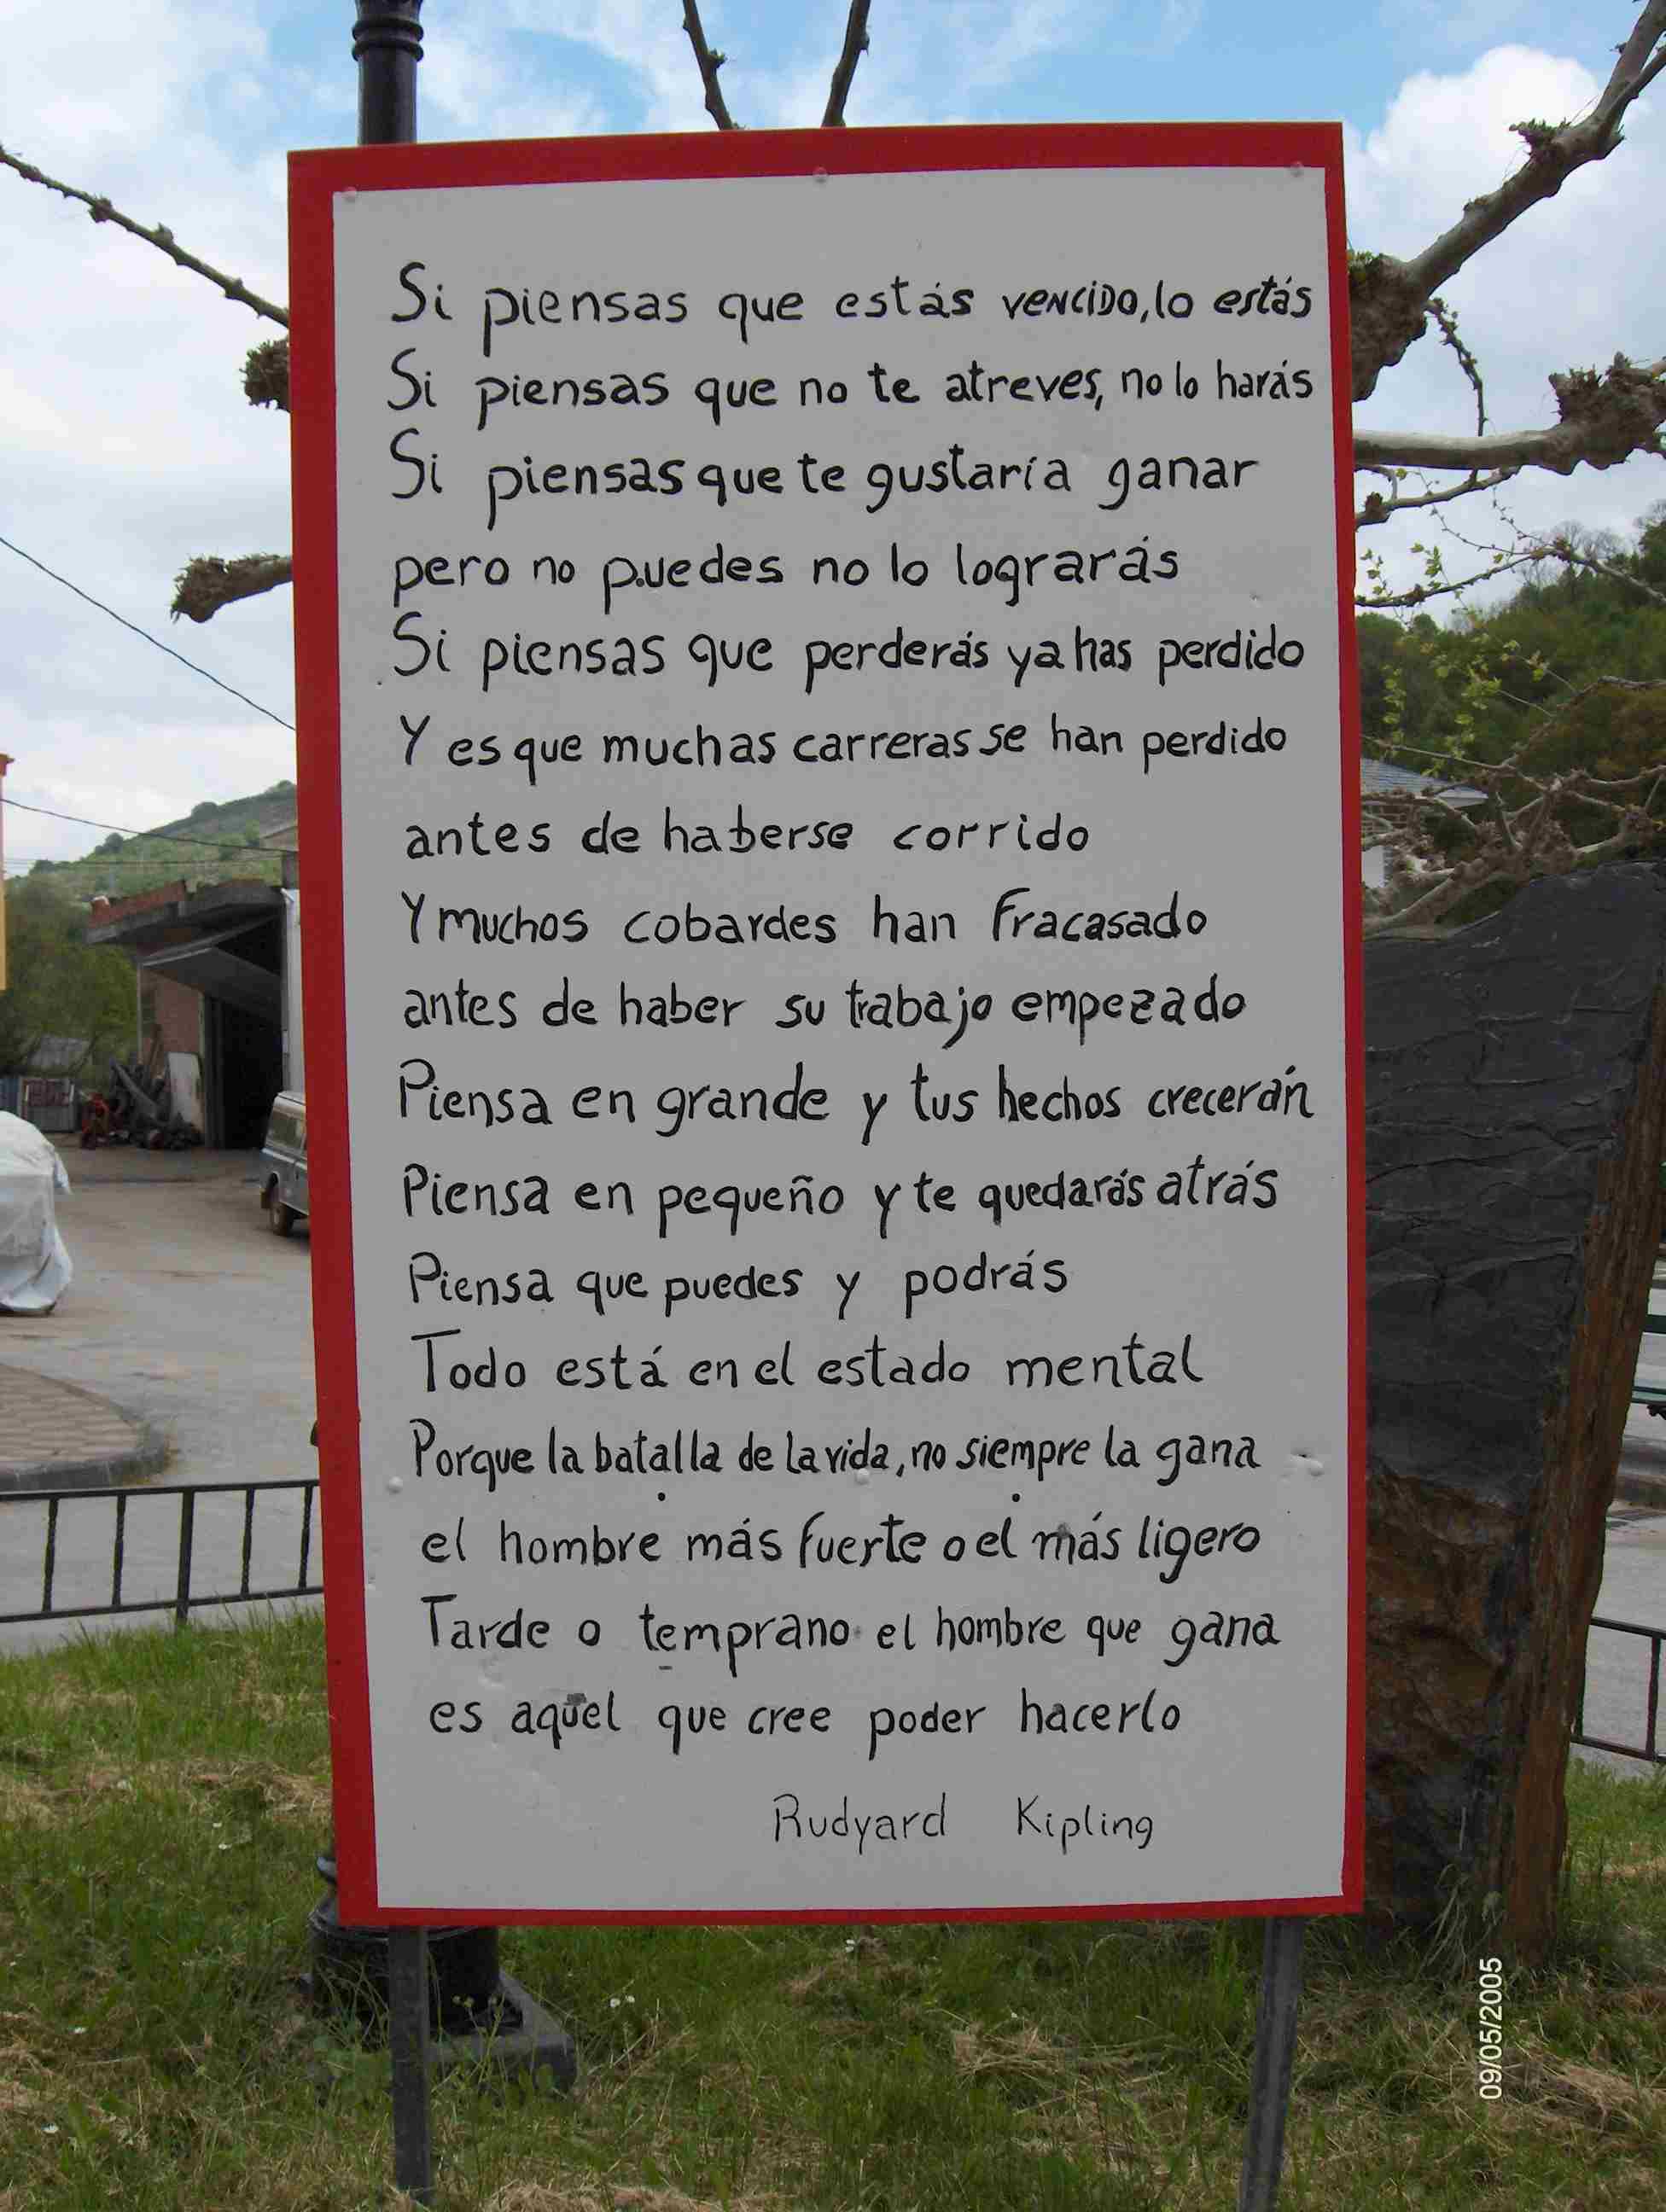 Si piensas que estás vencido, lo estás
Si piensas que no te atreves, no lo harás
Si piensas que te gustaría ganar
pero no puedes no lo lograrás
Si piensas que perderás ya has perdido
Y es que muchas carreras se han perdido
antes de haberse corrido
Y muchos cobardes han fracasado
antes de haber su trabajo empezado
Piensa en grande y tus hechos crecerán
Piensa en pequeño y te quedarás atrás
Piensa que puedes y podrás
Todo está en el estado mental
Porque la batalla de la vida, no siempre la gana
el hombre más fuerte o el más ligero
Tarde o temprano el hombre que gana
es aquel que cree poder hacerlo
Rudyard Kipling
09/05/2005